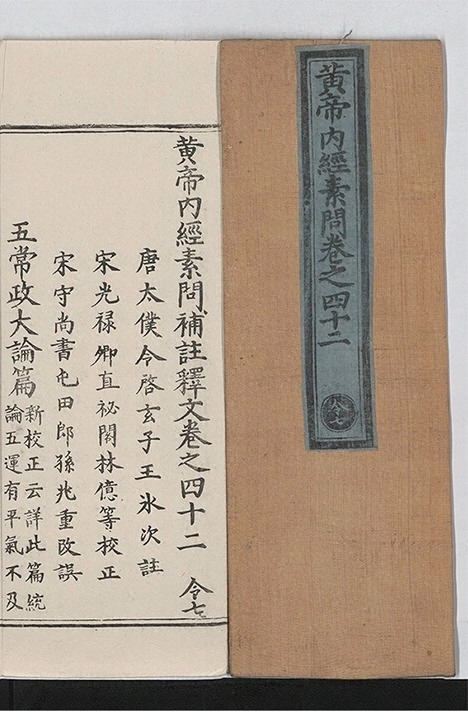 黄帝内經素問卷之四十二
黄帝内經素問補註釋文卷之四十二 令七
唐太僕令啓玄子王氷次註
宋光禄卿直祕閣林億等校正
宋守尚書屯田郎孫兆重改誤
五常政大論篇 新校正云詳此篇統
論五運有平氣不及